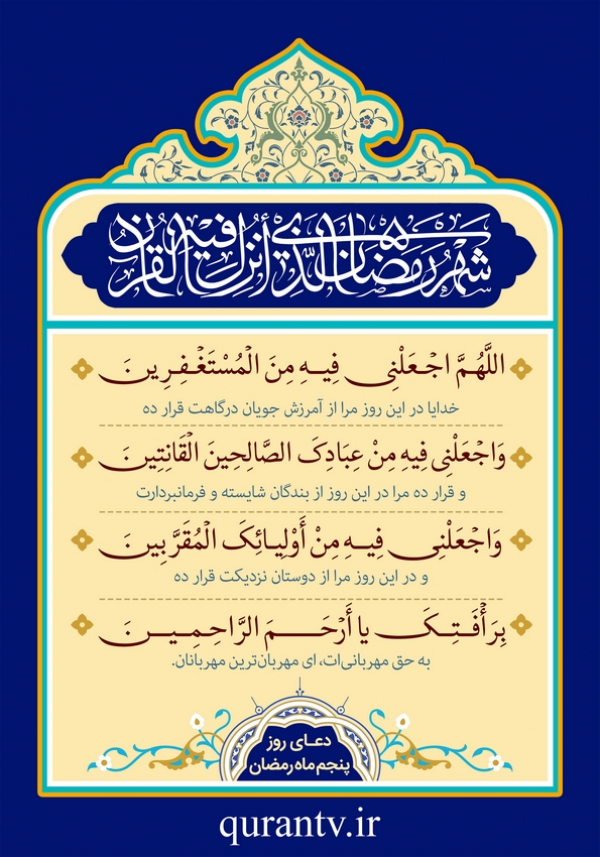 شهر رمضان الذي أنزل فيه القرآن
اللَّهُمَّ اجْعَلْنِی فِیهِ مِنَ الْمُسْتَغْفِرِینَ
خدایا در این روز مرا از آمرزش جویان درگاهت قرار ده
وَاجْعَلْنِی فِیهِ مِنْ عِبَادِکَ الصَّالِحِینَ الْقَانِتِینَ
و قرار ده مرا در این روز از بندگان شایسته و فرمانبردارت
وَاجْعَلْنِی فِیهِ مِنْ أَوْلِیائِکَ الْمُقَرَّبِینَ
و در این روز مرا از دوستان نزدیکت قرار ده
بِرَأْفَتِکَ یا أَرْحَمَ الرَّاحِمِینَ
به حق مهربانی‌ات، ای مهربان‌ترین مهربانان.
دعای روز
پنجم ماه رمضان
qurantv.ir